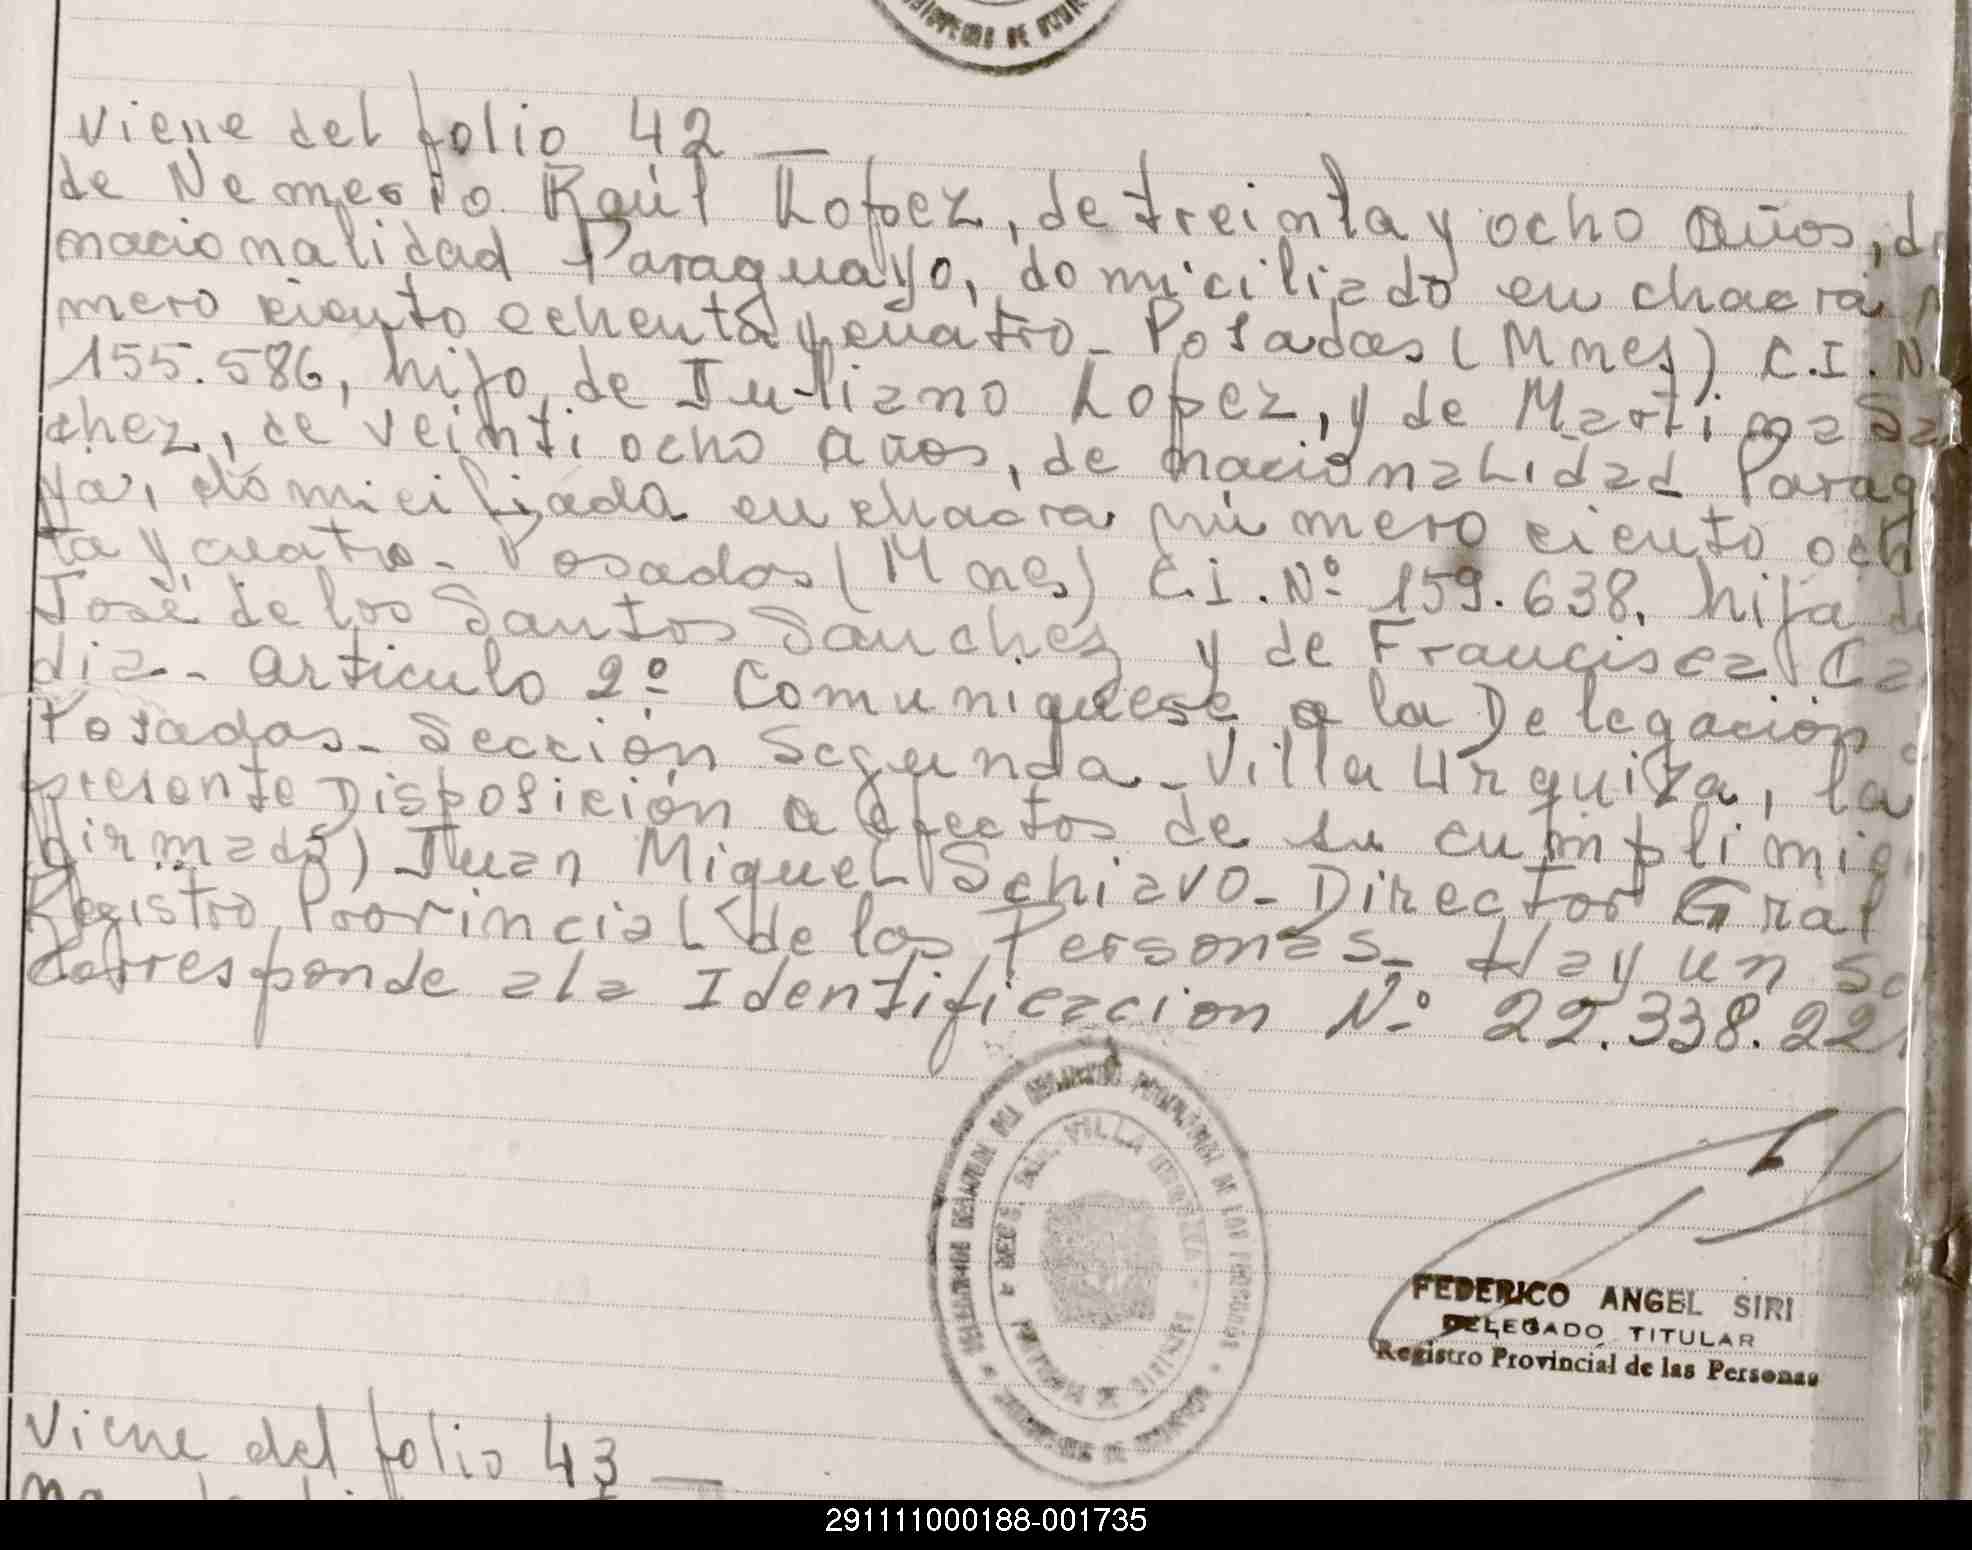 viene del folio 42 —
de Nemesio Raúl Lopez, de treinta y ocho años, de
nacionalidad Paraguayo, domiciliado en chacra
mero ciento ochenta y cuatro - Posadas (Mnes) C.I. N
155.586, hijo de Juliano Lopez, y de Martina Sa
chez, de veinti ocho años, de nacionalidad Parag
ya, domiciliada en chacra número ciento och
ta y cuatro - Posadas (Mnes) C.I. Nº 159.638, hija de
José de los Santos Sanchez y de Francisca Ca
dia - Articulo 2º Comuniquese a la Delegación
Posadas - Sección Segunda - Villa Urquiza, la
presente Disposición a efectos de su cumplimie
firmado) Juan Miguel Schiavo - Director Gral
Registro Provincial de las Personas - Hay un Se
Corresponde a la Identificacion Nº 22.338.22
VILLA URQUIZA
FEDERICO ANGEL SIRI
DELEGADO TITULAR
Registro Provincial de las Personas
Viene del folio 43 —
291111000188-001735